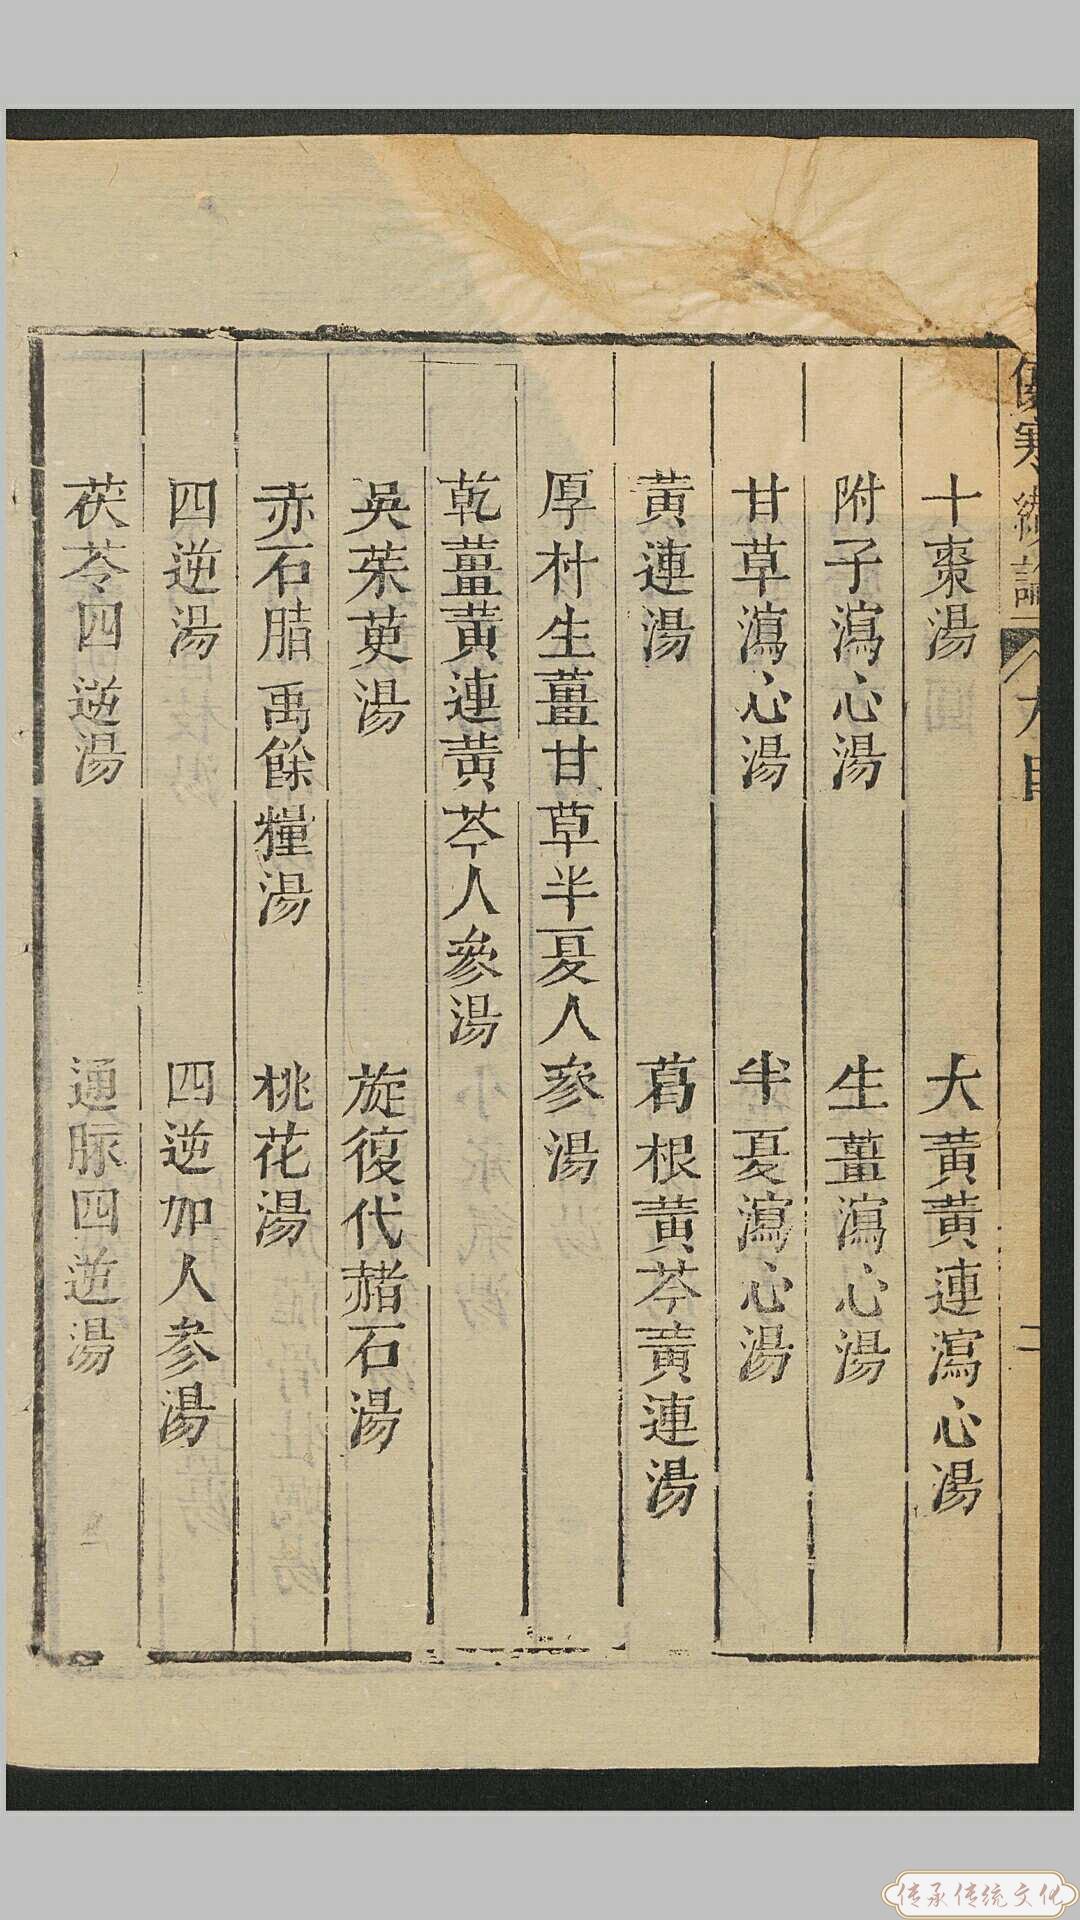 傷寒纘論 目 二
十棗湯 大黃黃連瀉心湯
附子瀉心湯 生薑瀉心湯
甘草瀉心湯 半夏瀉心湯
黃連湯 葛根黃芩黃連湯
厚朴生薑甘草半夏人參湯
乾薑黃連黃芩人參湯
吳茱萸湯 旋復代赭石湯
赤石脂禹餘糧湯 桃花湯
四逆湯 四逆加人参湯
茯苓四逆湯 通脉四逆湯
传承传统文化